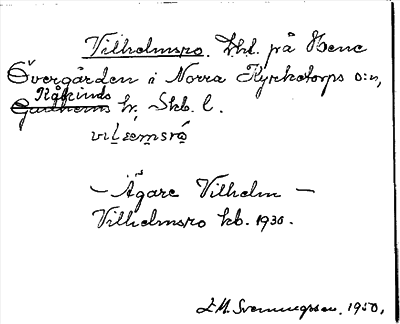 Vilhelmsro. Lht. på Stene
Övergården i Norra Kyrketorps s:n,
Kåkinds
Gudhems hr. Skb. l.
vilḥemsro
— Ägare Vilhelm —
Vilhelmsro kb. 1930.
E.M. Svenningsson. 1950.